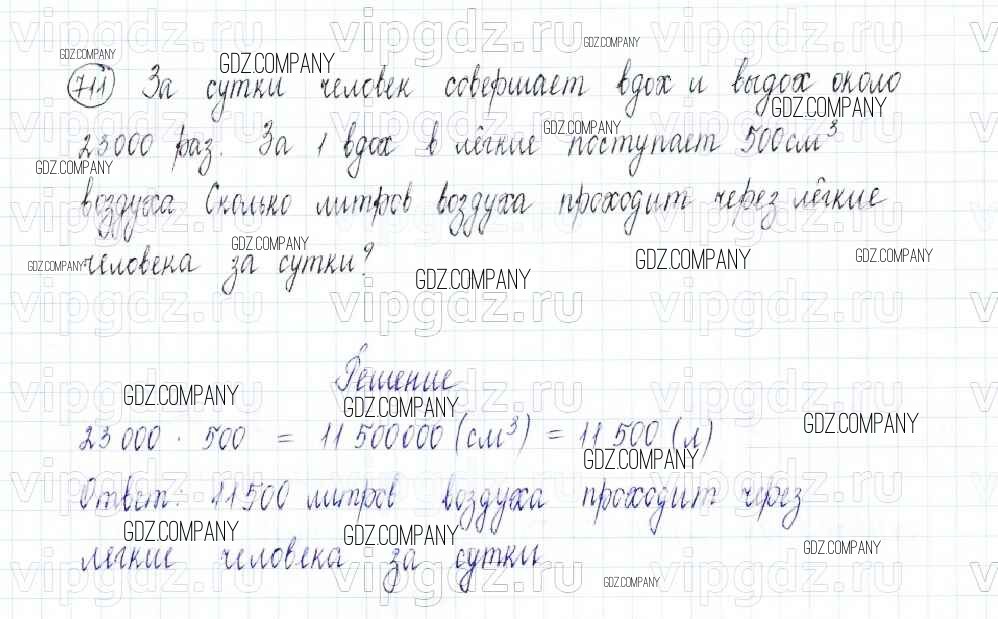 711 За сутки человек совершает вдох и выдох около
23000 раз. За 1 вдох в лёгкие поступает 500 см³
воздуха Сколько литров воздуха проходит через лёгкие
человека за сутки?
Решение
23 000 · 500 = 11 500000 (см³) = 11 500 (л)
Ответ: 11500 литров воздуха проходит через
легкие человека за сутки
GDZ.COMPANY
vipgdz.ru